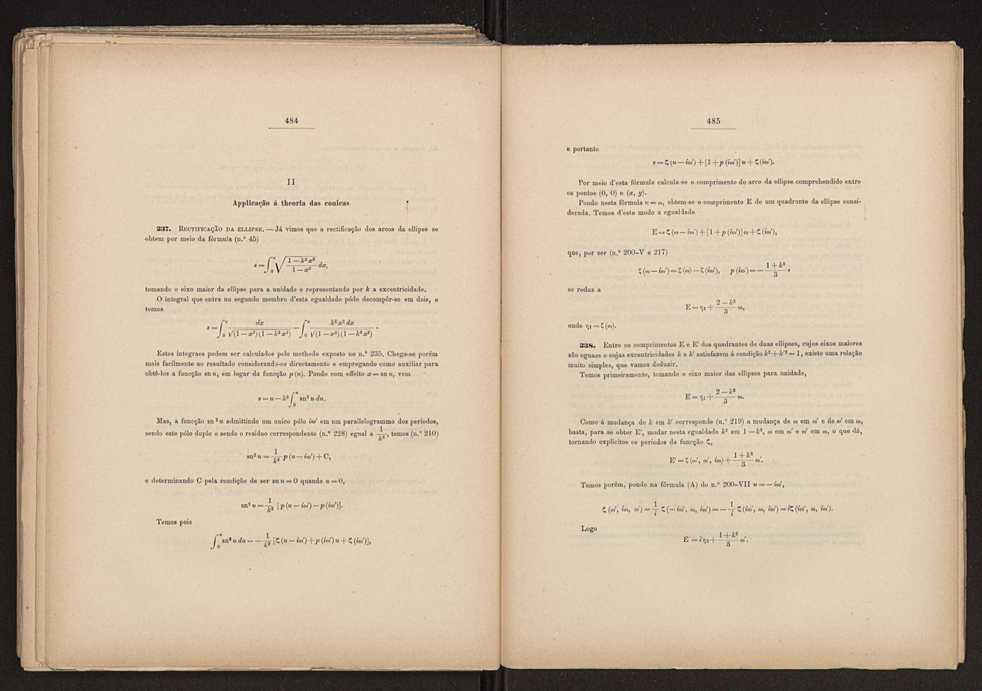 484
II
Applicação á theoria das conicas
237. RECTIFICAÇÃO DA ELLIPSE. — Já vimos que a rectificação dos arcos da ellipse se
obtem por meio da fórmula (n.º 45)
s = ∫₀ˣ √((1 — k² x²)/(1 — x²)) dx,
tomando o eixo maior da ellipse para a unidade e representando por k a excentricidade.
O integral que entra no segundo membro d'esta egualdade póde decompôr-se em dois, e
temos
s = ∫₀ˣ dx/√((1 — x²)(1 — k² x²)) — ∫₀ˣ k² x² dx/√((1 — x²)(1 — k² x²)) .
Estes integraes podem ser calculados pelo methodo exposto no n.º 235. Chega-se porém
mais facilmente ao resultado considerando-os directamente e empregando como auxiliar para
obtê-los a funcção sn u, em logar da funcção p (u). Pondo com effeito x = sn u, vem
s = u — k² ∫₀ᵘ sn² u du.
Mas, a funcção sn ² u admittindo um unico pólo iω' em um parallelogrammo dos periodos,
sendo este pólo duplo e sendo o residuo correspondente (n.º 228) egual a 1/k², temos (n.º 210)
sn² u = 1/k² p (u — iω') + C,
e determinando C pela condição de ser sn u = 0 quando u = 0,
sn² u = 1/k² [ p (u — iω') — p (iω')].
Temos pois
∫₀ᵘ sn² u du = — 1/k² [ζ (u — iω') + p (iω') u + ζ (iω')],
485
e portanto
s = ζ (u — iω') + [1 + p (iω')] u + ζ (iω').
Por meio d'esta fórmula calcula-se o comprimento do arco da ellipse comprehendido entre
os pontos (0, 0) e (x, y).
Pondo nesta fórmula u = ω, obtem-se o comprimento E de um quadrante da ellipse consi-
derada. Temos d'este modo a egualdade
E = ζ (ω — iω') + [1 + p (iω')] ω + ζ (iω'),
que, por ser (n.º 200-V e 217)
ζ (ω — iω') = ζ (ω) — ζ (iω'), p (iω') = — (1 + k²)/3 ,
se reduz a
E = η₁ + (2 — k²)/3 ω,
onde η₁ = ζ (ω).
238. Entre os comprimentos E e E' dos quadrantes de duas ellipses, cujos eixos maiores
são eguaes e cujas excentricidades k e k' satisfazem á condição k² + k'² = 1, existe uma relação
muito simples, que vamos deduzir.
Temos primeiramente, tomando o eixo maior das ellipses para unidade,
E = η₁ + (2 — k²)/3 ω.
Como á mudança de k em k' corresponde (n.º 219) a mudança de ω em ω' e de ω' em ω,
basta, para se obter E', mudar nesta egualdade k² em 1 — k², ω em ω' e ω' em ω, o que dá,
tornando explicitos os periodos da funcção ζ,
E' = ζ (ω', ω', iω) + (1 + k²)/3 ω'.
Temos porém, pondo na fórmula (A) do n.º 200-VII u = — iω',
ζ (ω', iω, ω') = 1/i ζ (— iω', ω, iω') = — 1/i ζ (iω', ω, iω') = iζ (iω', ω, iω').
Logo
E' = i η₂ + (1 + k²)/3 ω'.